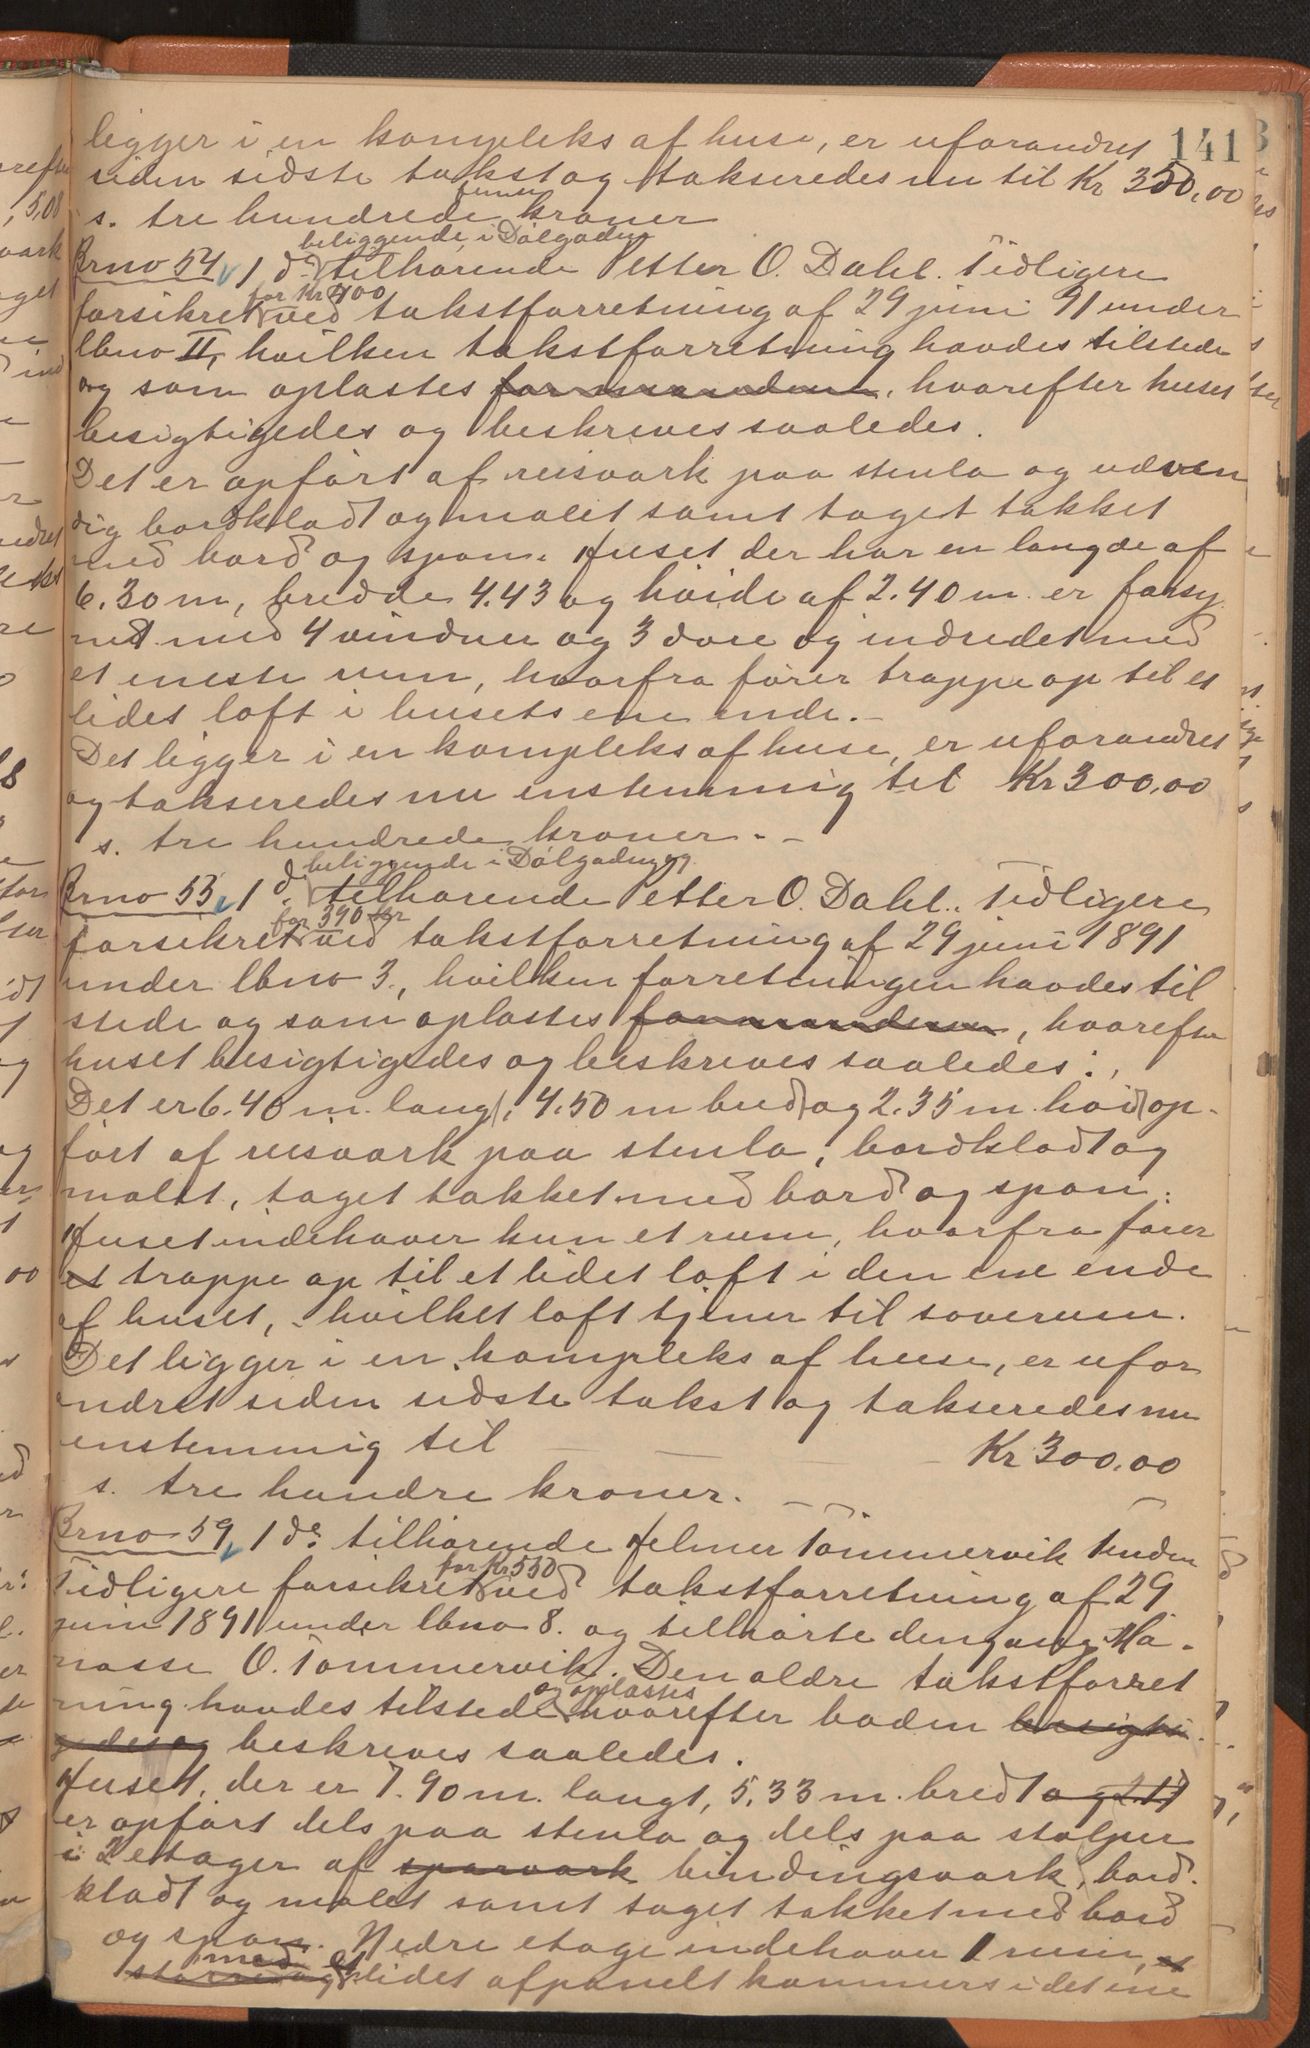 141
ligger i en kompleks af huse, er uforandret
siden sidste takst og takseredes nu til Kr 350,00
s. tre hundrede kroner
beliggende i Dølgaden
Brno 54, 1 do tilhørende Petter O. Dahl. Tidligere
for Kr 400
forsikret ved takstforretning af 29 juni 91 under
lbno II, hvilken takstforretning havdes tilstede
og som oplæstes for mændene, hvorefter huset
besigtigedes og beskreves saaledes.
Det er opført af reisværk paa stenla og udven
dig bordklædt og malet samt taget tækket
med bord og spon. Huset der har en længde af
6.30 m, bredde 4.43 og høide af 2.40 m. er forsy
net med 4 vinduer og 3 døre og indredet med
et eneste rum, hvorfra fører trappe op til et
lidet loft i husets ene ende. –
Det ligger i en kompleks af huse, er uforandret
og takseredes nu enstemmig til Kr 300,00
s. tre hundrede kroner. –
beliggende i Dølgaden
Brno 55, 1 d. tilhørende Petter O. Dahl. Tidligere
for 390 kr
forsikret ved takstforretning af 29 juni 1891
under lbno 3., hvilken forretningen havdes til
stede og som oplæstes for mændene, hvorefter
huset besigtigedes og beskreves saaledes:
Det er 6.40 m. lang, 4.50 m bred og 2.35 m. høid op-
ført af reisværk paa stenla, bordklædt og
malet, taget tækket med bord og spon.
Huset indehaver kun et rum, hvorfra fører
et trappe op til et lidet loft i den ene ende
af huset, – hvilket loft tjener til soverum.
Det ligger i en kompleks af huse, er ufor
andret siden sidste takst og takseredes nu
enstemmig til – – – Kr 300.00
s. tre hundre kroner. –
Brno 59, 1 do. tilhørende Helmer Tømmervik
for Kr 550
Tidligere forsikret ved takstforretning af 29
juni 1891 under lbno 8. og tilhørte dengang Ma-
nasse O. Tømmervik. Den ældre takstforret
og oplæstes
ning havdes tilstede hvorefter boden besigti
gedes og beskreves saaledes.
Huset, der er 7.90 m. langt, 5.33 m. bredt og
er opført dels paa stenla og dels paa stolper
i 2 etager af sparværk bindingsværk, bord-
klædt og malet samt taget tækket med bord
og spon. Nedre etage indehaver 1 rum,
med et
større og lidet afpanelt kammers i det ene